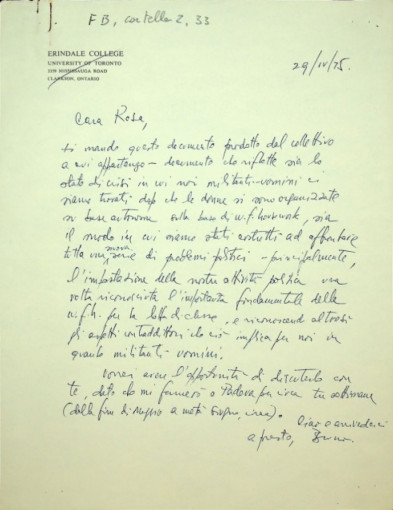 FB, cartella 2, 33
ERINDALE COLLEGE
UNIVERSITY OF TORONTO
3359 MISSISSAUGA ROAD
CLARKSON, ONTARIO
29/IV/75.
Cara Rosa,
ti mando questo documento prodotto dal collettivo
a cui appartengo – documento che riflette sia lo
stato di crisi in cui noi militanti-uomini ci
siamo trovati dopo che le donne si sono organizzate
su base autonoma sulla base di w.f. housework, sia
il modo in cui siamo stati costretti ad affrontare
tutta una nuova serie di problemi politici – principalmente,
l'impostazione della nostra attività politica una
volta riconosciuta l'importanza fondamentale della
w.f.h. per la lotta di classe, e riconoscendo altresì
gli aspetti contraddittori che ciò implica per noi in
quanto militanti uomini.
Vorrei avere l'opportunità di discuterlo con
te, dato che mi fermerò a Padova per circa tre settimane
(dalla fine di maggio a metà giugno, circa).
Ciao e arrivederci
a presto, Bruno.